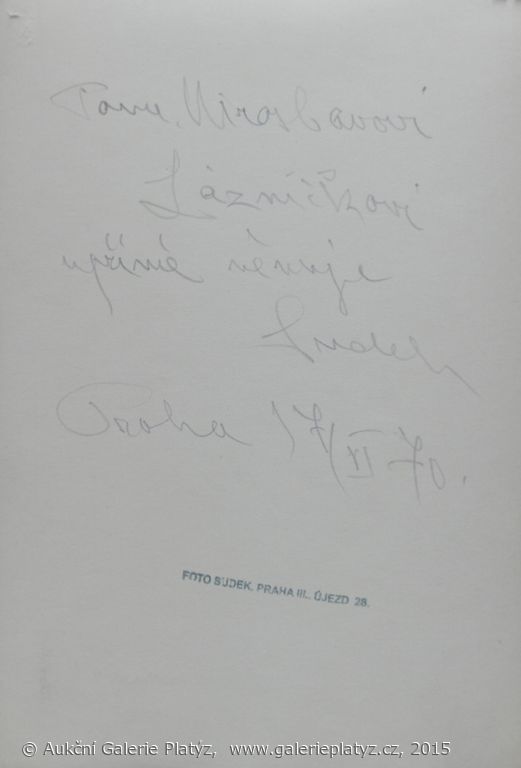 Panu. Miroslavovi
Lázničkovi
upřímě věnuje
Sudek
Praha 17/XI 70.
FOTO SUDEK, PRAHA III., ÚJEZD 28.
© Aukční Galerie Platýz, www.galerieplatyz.cz, 2015